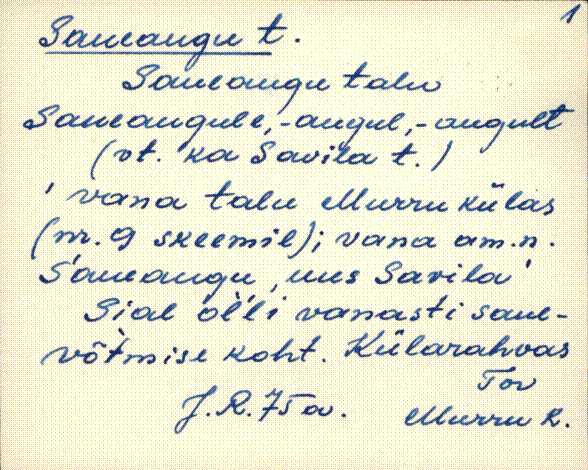 1
Saueaugu t.
Saueaugu talu
Saueaugule, -augul, -augult
(vt. ka Savila t.)
' vana talu Murru külas
(nr. 9 skeemil); vana am.n.
Saueaugu, uus Savila'
Sial ol'li vanasti saue-
võtmise koht. Külarahvas
Tov
J.R. 75 a. Murru k.